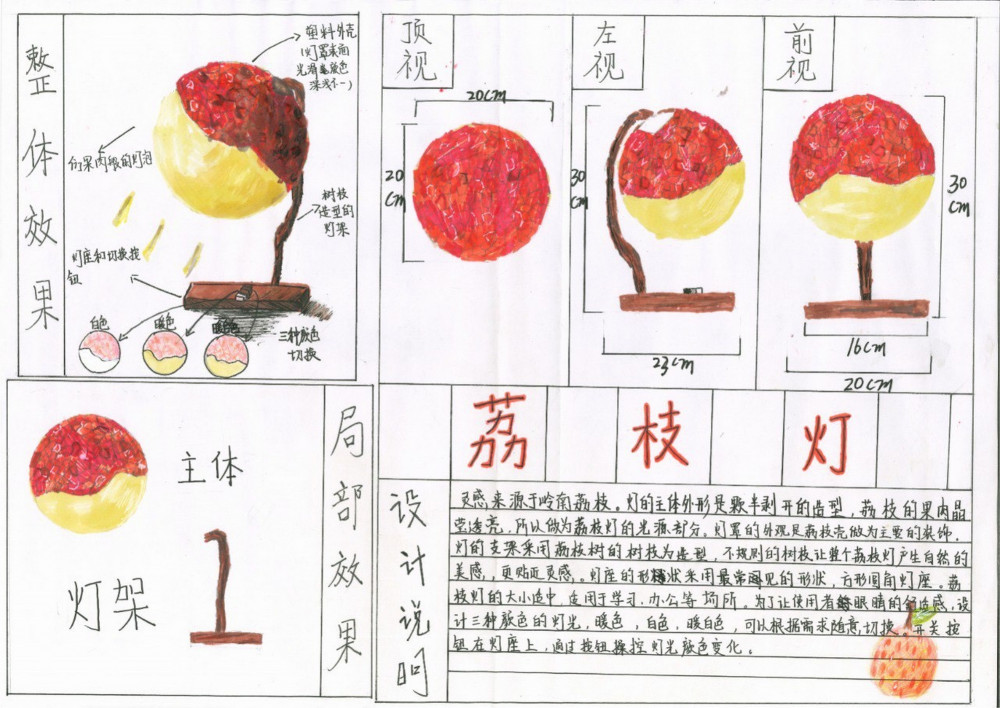 整体效果
塑料外壳
(灯罩表面
光滑颜色
深浅不一)
仿果肉状的灯泡
树枝
造型的
灯架
灯座和切换按
钮
白色
暖色
暖白色
三种颜色
切换
顶视
20CM
20CM
左视
30CM
23CM
前视
30CM
16CM
20CM
主体
灯架
局部效果
荔枝灯
设计说明
灵感来源于岭南荔枝。灯的主体外形是颗半剥开的造型，荔枝的果肉晶
莹透亮，所以做为荔枝灯的光源部分。灯罩的外观是荔枝壳做为主要的装饰，
灯的支架采用荔枝树的树枝为造型，不规则的树枝让整个荔枝灯产生自然的
美感，更贴近灵感。灯座的形状采用最常见的形状，方形圆角灯座。荔
枝灯的大小适中，适用于学习，办公等场所。为了让使用者眼睛的舒适感，设
计三种颜色的灯光，暖色，白色，暖白色，可以根据需求随意切换，开关按
钮在灯座上，通过按钮操控灯光颜色变化。